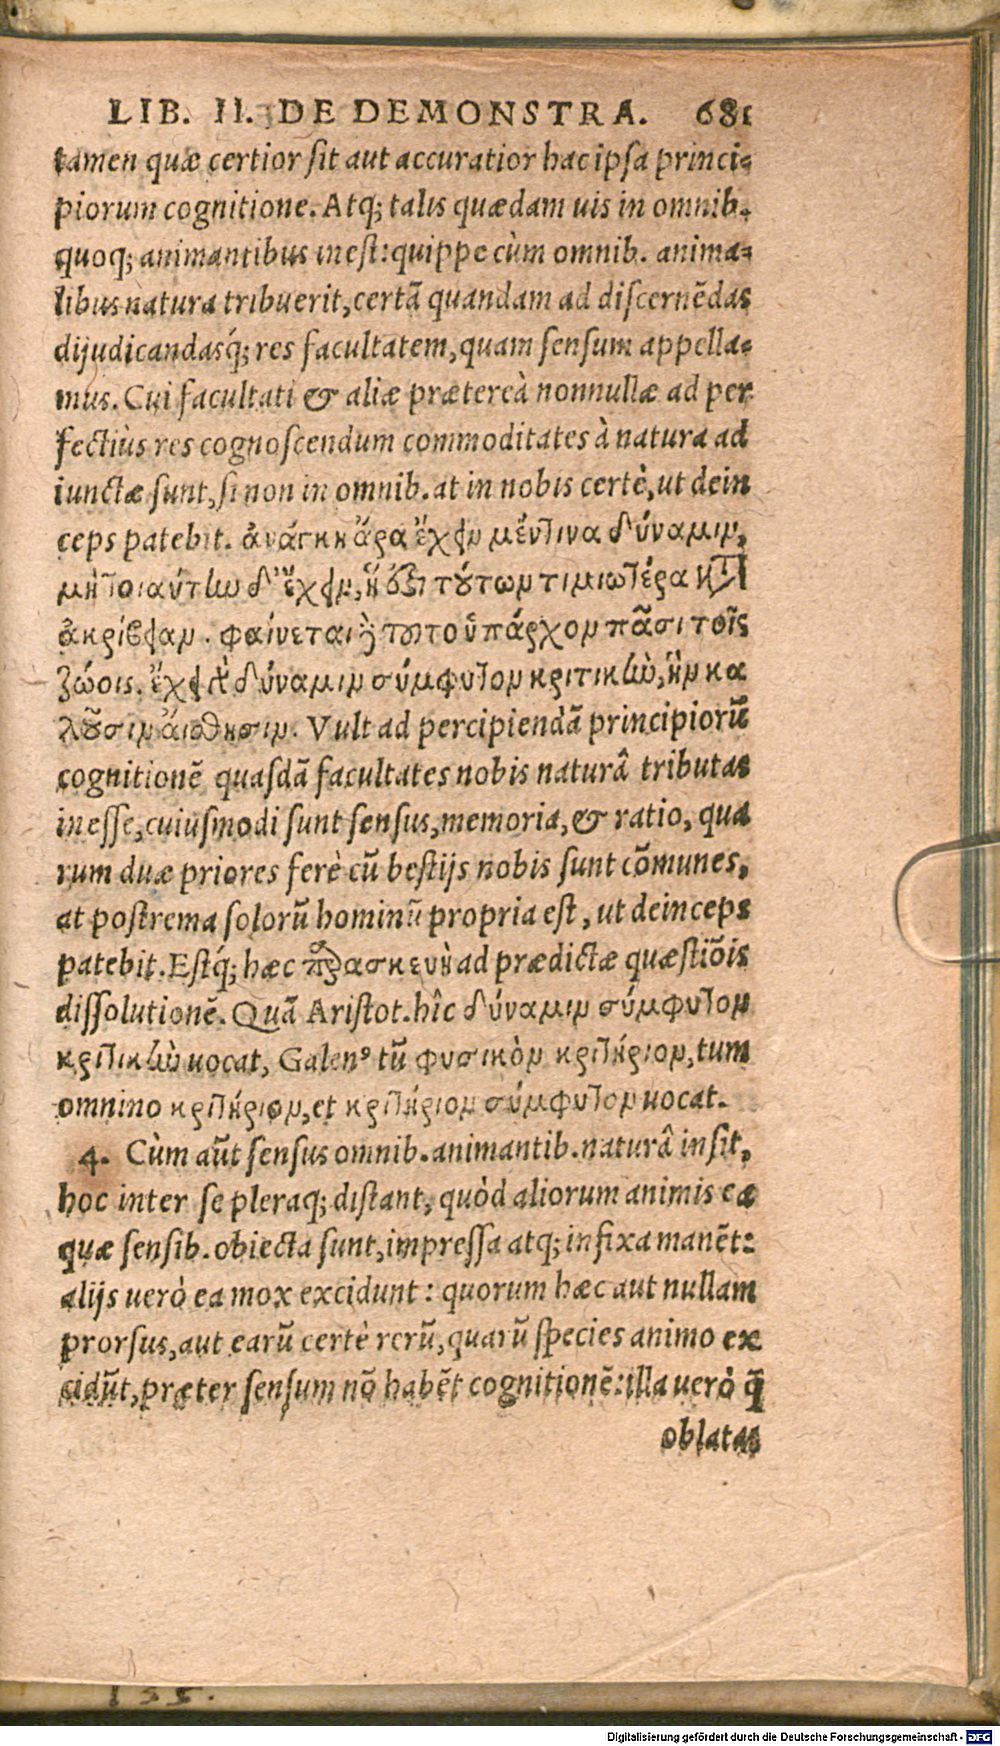 LIB. II. DE DEMONSTRA. 681
tamen quæ certior sit aut accuratior hac ipsa princi-
piorum cognitione. Atq; talis quædam uis in omnib.
quoq; animantibus inest: quippe cùm omnib. anima-
libus natura tribuerit, certā quandam ad discernēdas
dijudicandasq́; res facultatem, quam sensum appella-
mus. Cui facultati & aliæ prætereà nonnullæ ad per
fectiùs res cognoscendum commoditates à natura ad
iunctæ sunt, si non in omnib. at in nobis certè, ut dein
ceps patebit. ἀνάγκη ἄρα ἔχειν μέν τινα δύναμιν,
μὴ τοιαύτην δ' ἔχειν, ἣ ἔσται τούτων τιμιωτέρα κατ'
ἀκρίβειαν. φαίνεται δὲ τοῦτο ὑπάρχον πᾶσι τοῖς
ζώοις. ἔχει γὰρ δύναμιν σύμφυτον κριτικὴν, ἣν κα
λοῦσιν αἴσθησιν. Vult ad percipiendā principiorū
cognitionē quasdā facultates nobis naturâ tributas
inesse, cuiusmodi sunt sensus, memoria, & ratio, qua
rum duæ priores ferè cū bestijs nobis sunt cōmunes,
at postrema solorū hominū propria est, ut deinceps
patebit. Estq́; hæc παρασκευὴ ad prædictæ quæstiōis
dissolutionē. Quā Aristot. hîc δύναμιν σύμφυτον
κριτικὴν uocat, Galenꝰ tū φυσικὸν κριτήριον, tum
omnino κριτήριον, et κριτήριον σύμφυτον uocat.
4. Cùm aūt sensus omnib. animantib. naturâ insit,
hoc inter se pleraq; distant, quòd aliorum animis ea
quæ sensib. obiecta sunt, impressa atq; infixa manēt:
alijs uerò ea mox excidunt: quorum hæc aut nullam
prorsus, aut earū certè rerū, quarū species animo ex
cidūt, præter sensum nō habēt cognitionē: illa uerò q̄
oblatas
155.
Digitalisierung gefördert durch die Deutsche Forschungsgemeinschaft - DFG